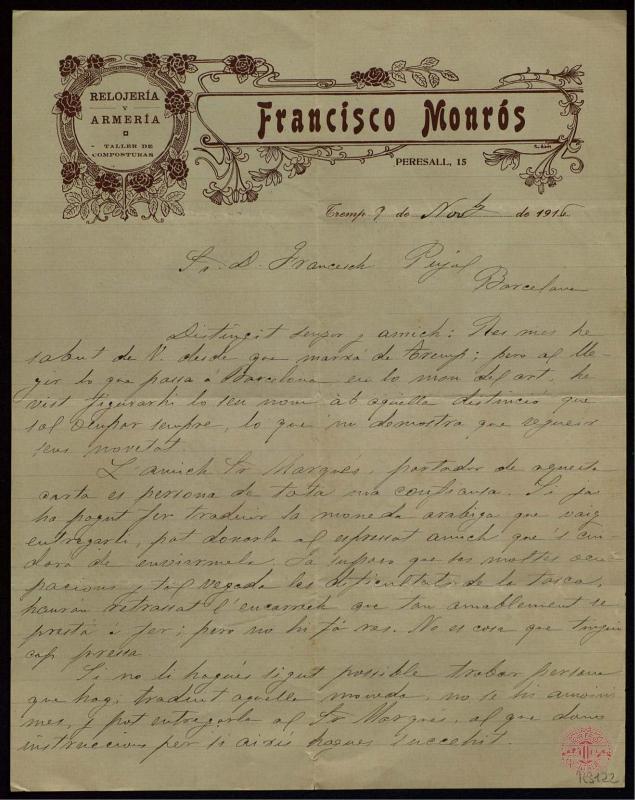 RELOJERÍA
Y
ARMERÍA
TALLER DE
COMPOSTURAS
Francisco Monrós
PERESALL, 15
Tremp 9 de Novbre de 1916
Sr. D. Francesch Pujol
Barcelona
Distingit senyor y amich: Res mes he
sabut de V. desde que marxá de Tremp; pero al lle-
gir lo que passa á Barcelona en lo mon del art, he
vist figurarhi lo seu nom ab aquella distinció que
sol ocupar sempre, lo que 'm demostra que segueix
sens novetat.
L'amich Sr Marqués, portador de aquesta
carta es persona de tota ma confiansa. Si ja
ha pogut fer traduir la moneda arabiga que vaig
entregarli, pot donarla al espressat amich que 's cui-
dará de enviarmela. Ja suposo que sas moltas ocu-
pacions y tal vegada las dificultats de la tasca,
hauran retrassat l'encarrech que tan amablement se
prestá á fer; pero no hi fá res. No es cosa que tingui
cap pressa.
Si no li hagués sigut possible trobar persona
que hagi traduit aquella moneda, no se hi amoini
mes, y pot entregarla al Sr Marqués, al que dono
instruccions per si aixís hagués succehit.
R3122